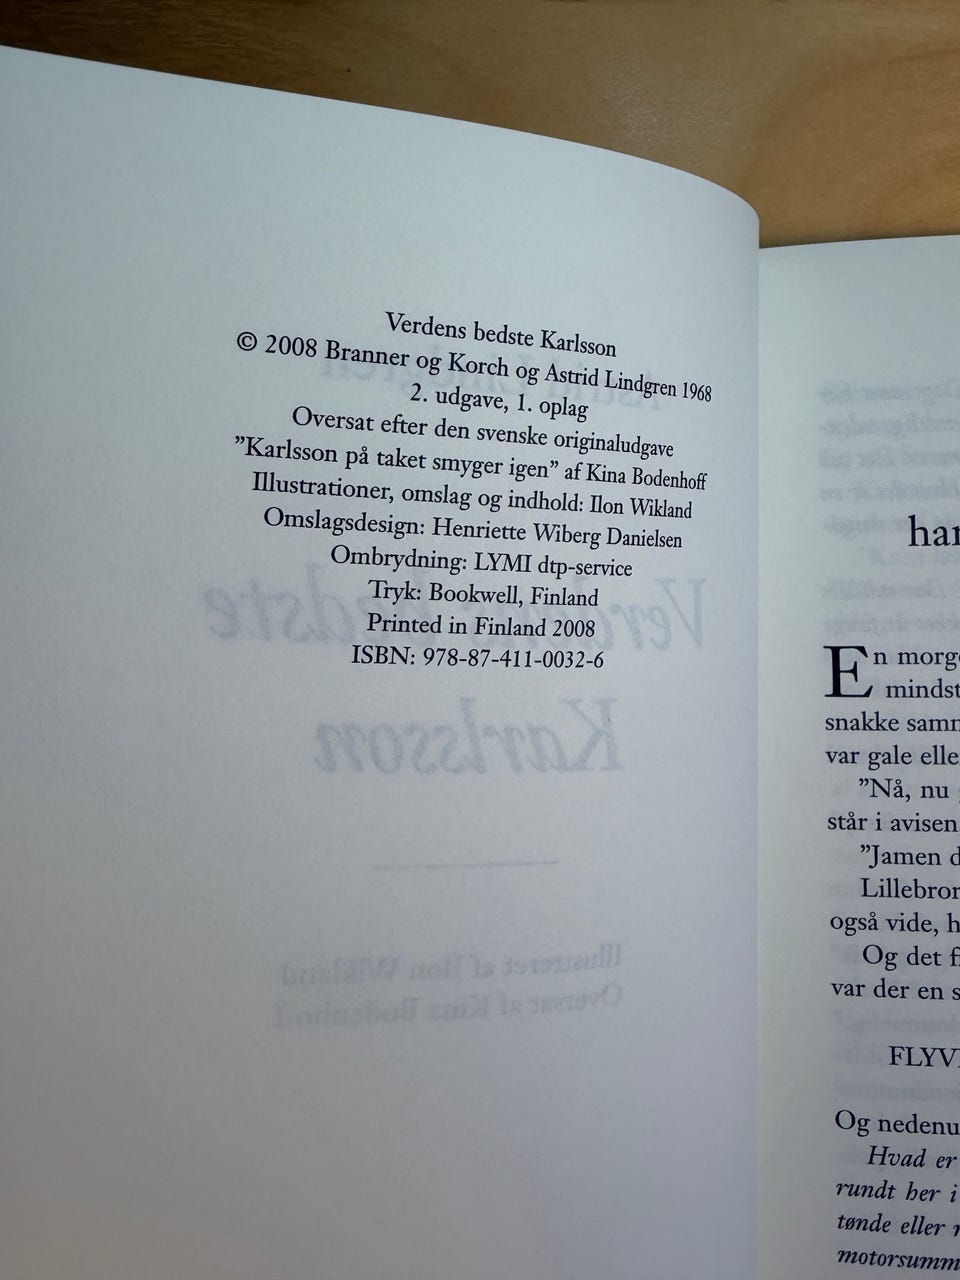 Verdens bedste Karlsson
© 2008 Branner og Korch og Astrid Lindgren 1968
2. udgave, 1. oplag
Oversat efter den svenske originaludgave
”Karlsson på taket smyger igen” af Kina Bodenhoff
Illustrationer, omslag og indhold: Ilon Wikland
Omslagsdesign: Henriette Wiberg Danielsen
Ombrydning: LYMI dtp-service
Tryk: Bookwell, Finland
Printed in Finland 2008
ISBN: 978-87-411-0032-6
Verdens bedste
Karlsson
Illustreret af Ilon Wikland
Oversat af Kina Bodenhoff
har
En morge
mindst
snakke samm
var gale elle
”Nå, nu
står i avisen
”Jamen d
Lillebror
også vide, h
Og det f
var der en s
FLYV
Og nedenu
Hvad er
rundt her i
tønde eller
motorsumm